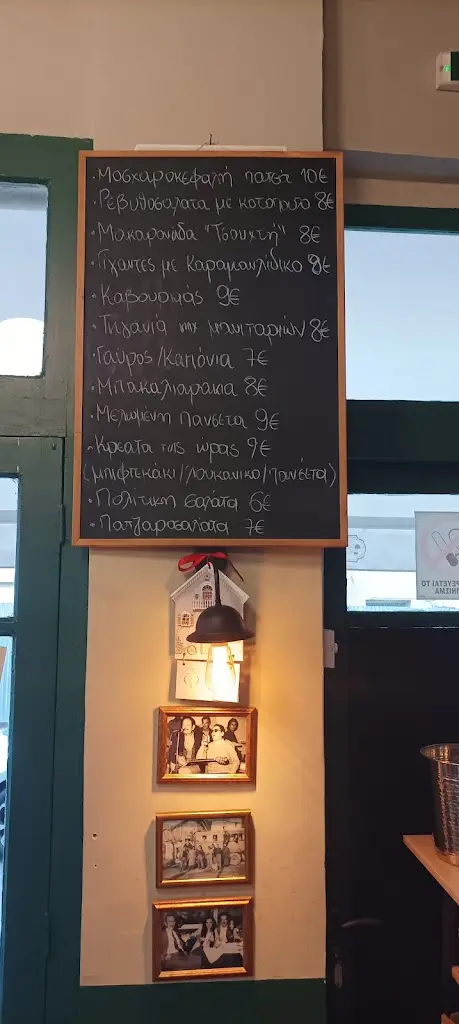 · Μοσχαροκεφαλή πατσά 10€
· Ρεβυθοσαλατα με κοτόπουλο 8€
· Μακαρονάδα "Τσουχτή" 8€
· Γίγαντες με Καραμανλίδικο 8€
· Καβουρμάς 9€
· Τηγανιά μανιταριών 8€
· Γαύρος/Καπόνια 7€
· Μπακαλιαράκια 8€
· Μελωμένη Πανσέτα 9€
· Κρέατα της ώρας 9€
(μπιφτεκάκι/λουκάνικο/πανσέτα)
· Πολίτικη σαλάτα 6€
· Παντζαροσαλατα 7€